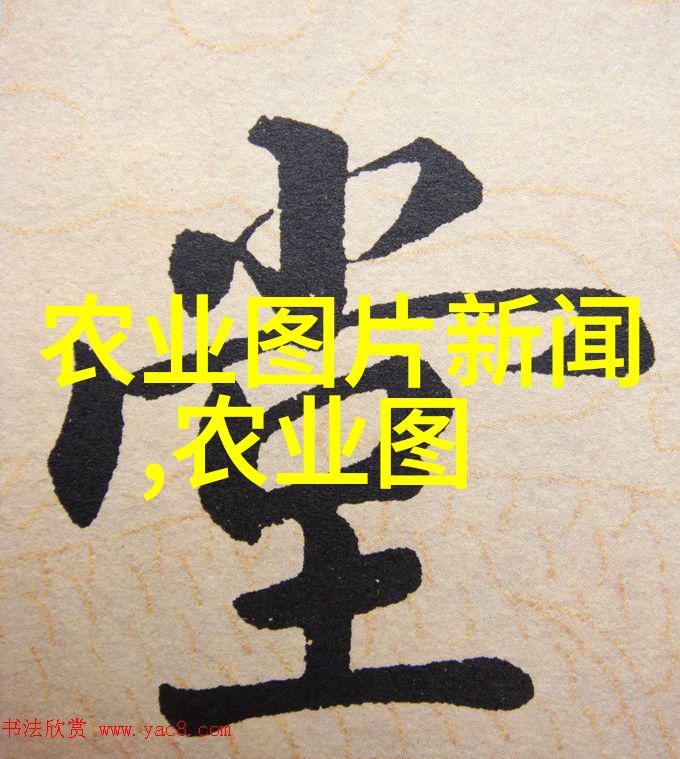 堂
农业图片新闻
,农业图
书法欣赏 www.yac8.com